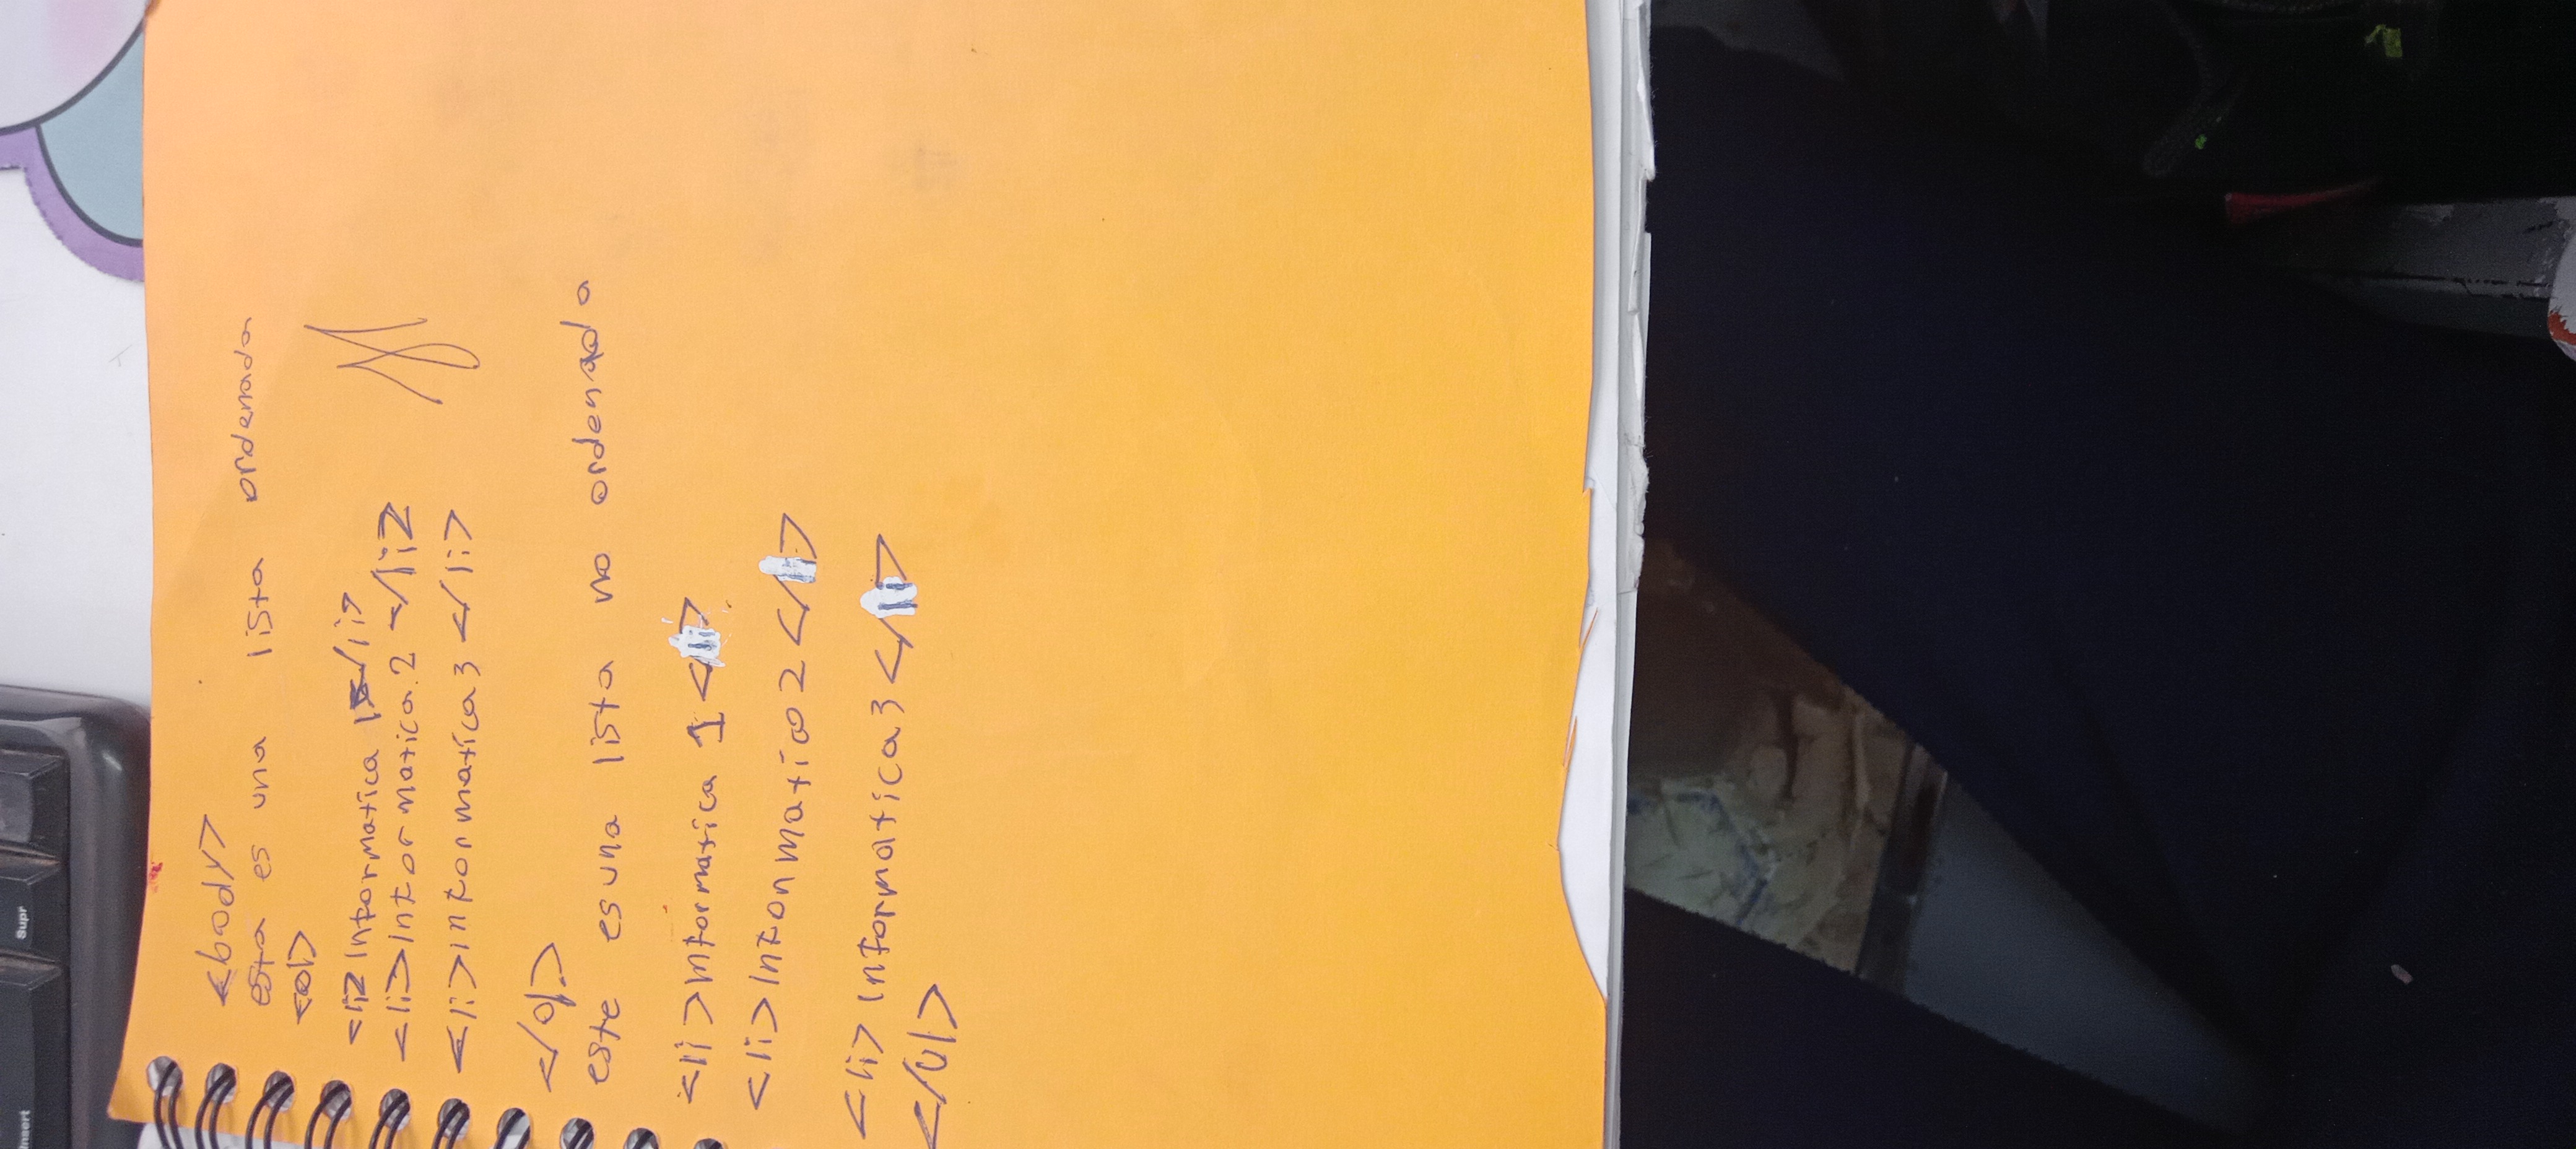 <body>
esta es una lista ordenada
<ol>
<li>Informatica 1</li>
<li>informatica 2 </li>
<li>informatica 3 </li>
</ol>
este es una lista no ordenada
<li>Informatica 1 </li>
<li>Informatica 2 </li>
<li>Informatica 3 </li>
</ul>
Insert
Supr